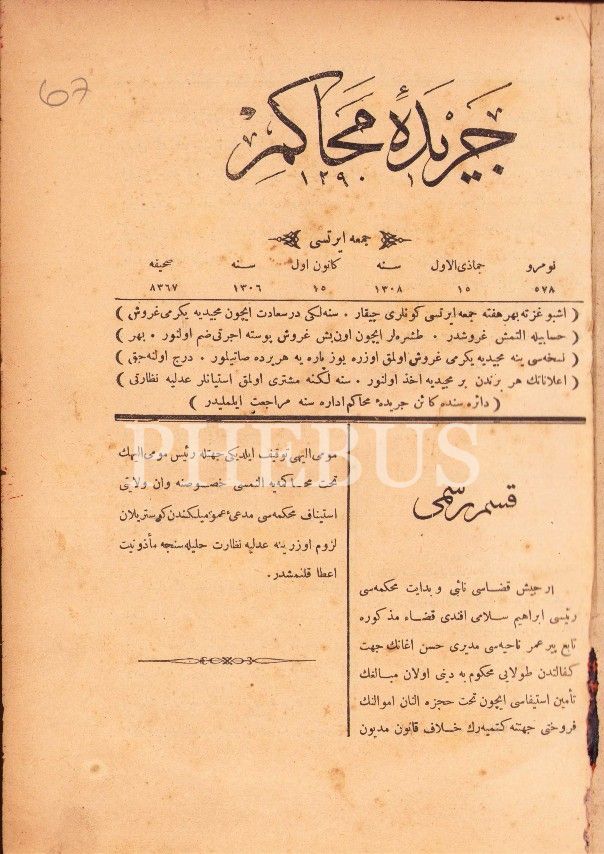 67
جریدۀ محاكم
١٢٩٠
جمعه ایرتسی
نومرو جماذی‌الاول سنه كانون اول سنه صحیفه
٥٧٨ ١٥ ١٣٠٨ ١٥ ١٣٠٦ ٨٣٦٧
( اشبو غزته بهر هفته جمعه ایرتسی كونلری چیقار . سنه لكی درسعادت ایچون مجیدیه یكرمی غروش )
( حسابیله التمش غروشدر . طشره‌لر ایچون اون بش غروش پوسته اجرتی ضم اولنور . بهر )
( نسخه‌سی ینه مجیدیه یكرمی غروش اولمق اوزره یوز پاره یه هر یرده صاتیلور . درج اولنه‌جق )
( اعلاناتك هر بندن بر مجیدیه اخذ اولنور . سنه لكنه مشتری اولمق استیانلر عدلیه نظارتی )
( دائره سنده كائن جریدۀ محاكم اداره سنه مراجعت ایلملیدر )
PHEBUS
قسم رسمی
ارجیش قضاسی نائبی و بدایت محكمه‌سی
رئیسی ابراهیم سلامی افندی قضاء مذكوره
تابع پیر عمر ناحیه‌سی مدیری حسن اغانك جهت
كفالتدن طولایی محكوم به دینی اولان مبالغك
تأمین استیفاسی ایچون تحت حجزه النان اموالنك
فروختی جهتنه كتمیه‌رك خلاف قانون مدیون
مومی الیهی توقیف ایلدیكی جهتله رئیس مومی الیهك
تحت محاكمه‌یه النمسی خصوصنه وان ولایتی
استیناف محكمه‌سی مدعیء عمومیلكندن كوستریلان
لزوم اوزرینه عدلیه نظارت جلیله سنجه مأذونیت
اعطا قلنمشدر.